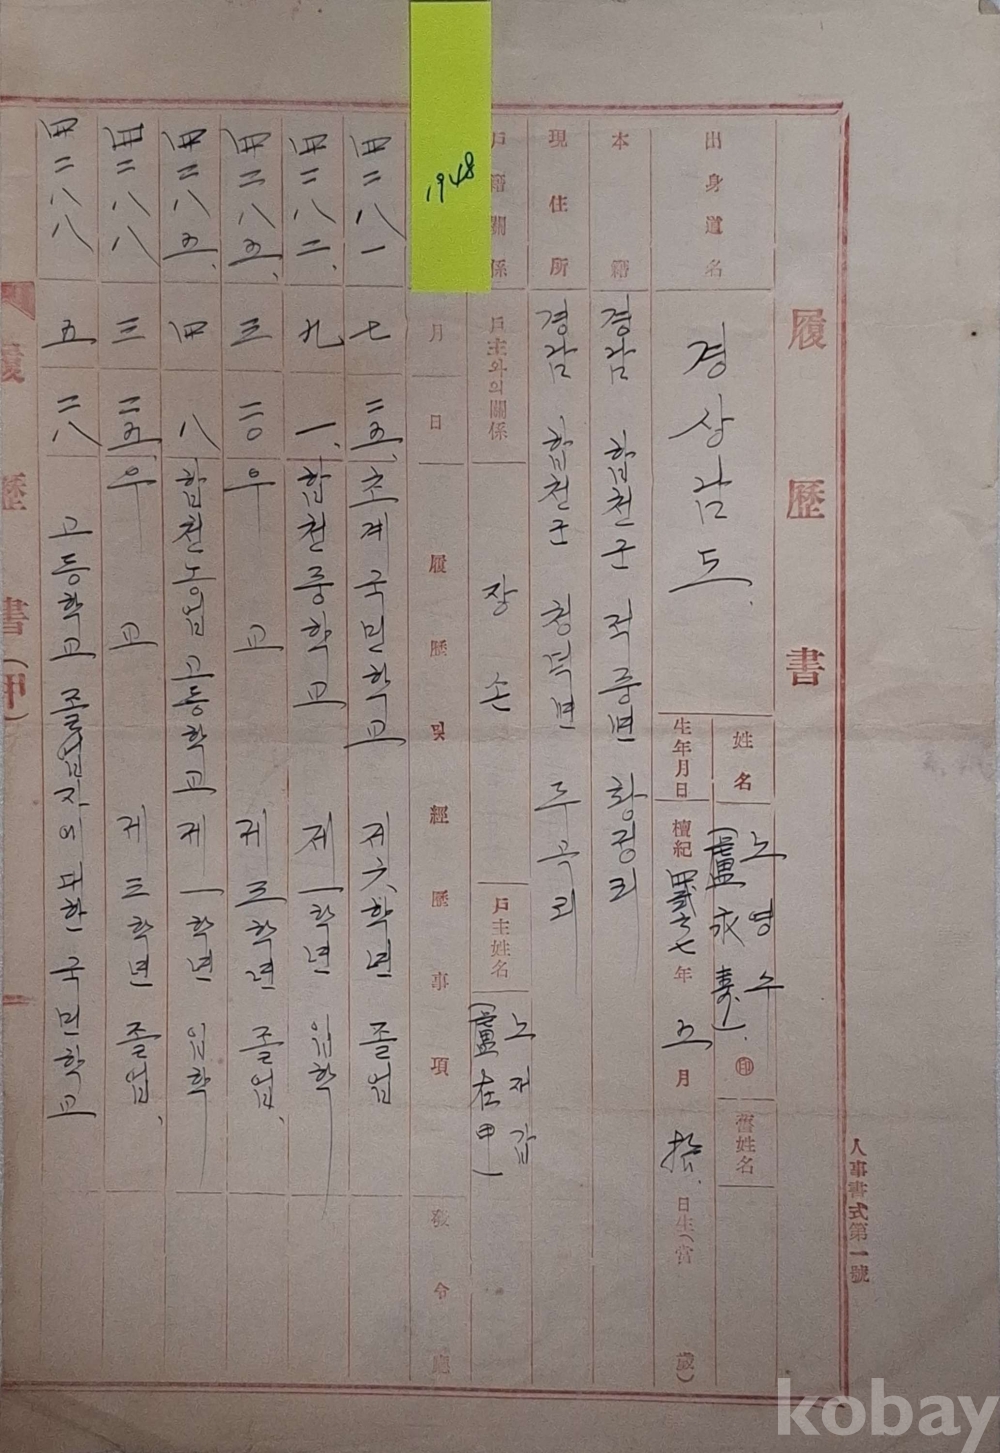 人事書式第一號
履歷書
出身道名 경상남도
姓名 노영수 (盧永壽) ㊞ 舊姓名
生年月日 檀紀 年 五月 拾 日生(當 歲)
本籍 경남 합천군 적중면 황정리
現住所 경남 합천군 청덕면 두곡리
戶籍關係 戶主와의關係 장손 戶主姓名 노재갑 (盧在甲)
1948
月 日 履歷 및 經歷事項 發令廳
四二八一 七 二五、 초계국민학교 제六학년 졸업
四二八二、 九 一、 합천중학교 제一학년 입학
四二八五、 三 二〇 우교 제三학년 졸업、
四二八五、 四 八 합천농업고등학교 제一학년 입학
四二八八 三 二五、 우교 제三학년 졸업、
四二八八 五 二八 고등학교 졸업자의 위한 국민학교
履歷書(甲)
kobay